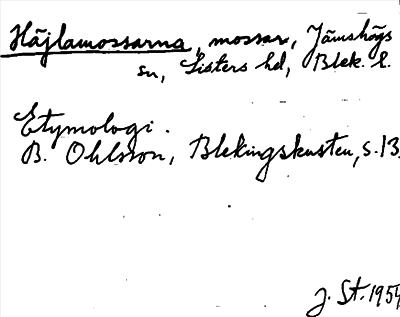 Häjlamossarna, mossar, Jämshögs
sn, Listers hd, Blek. l.
Etymologi.
B. Ohlsson, Blekingskusten, s. 13
J. St. 1954